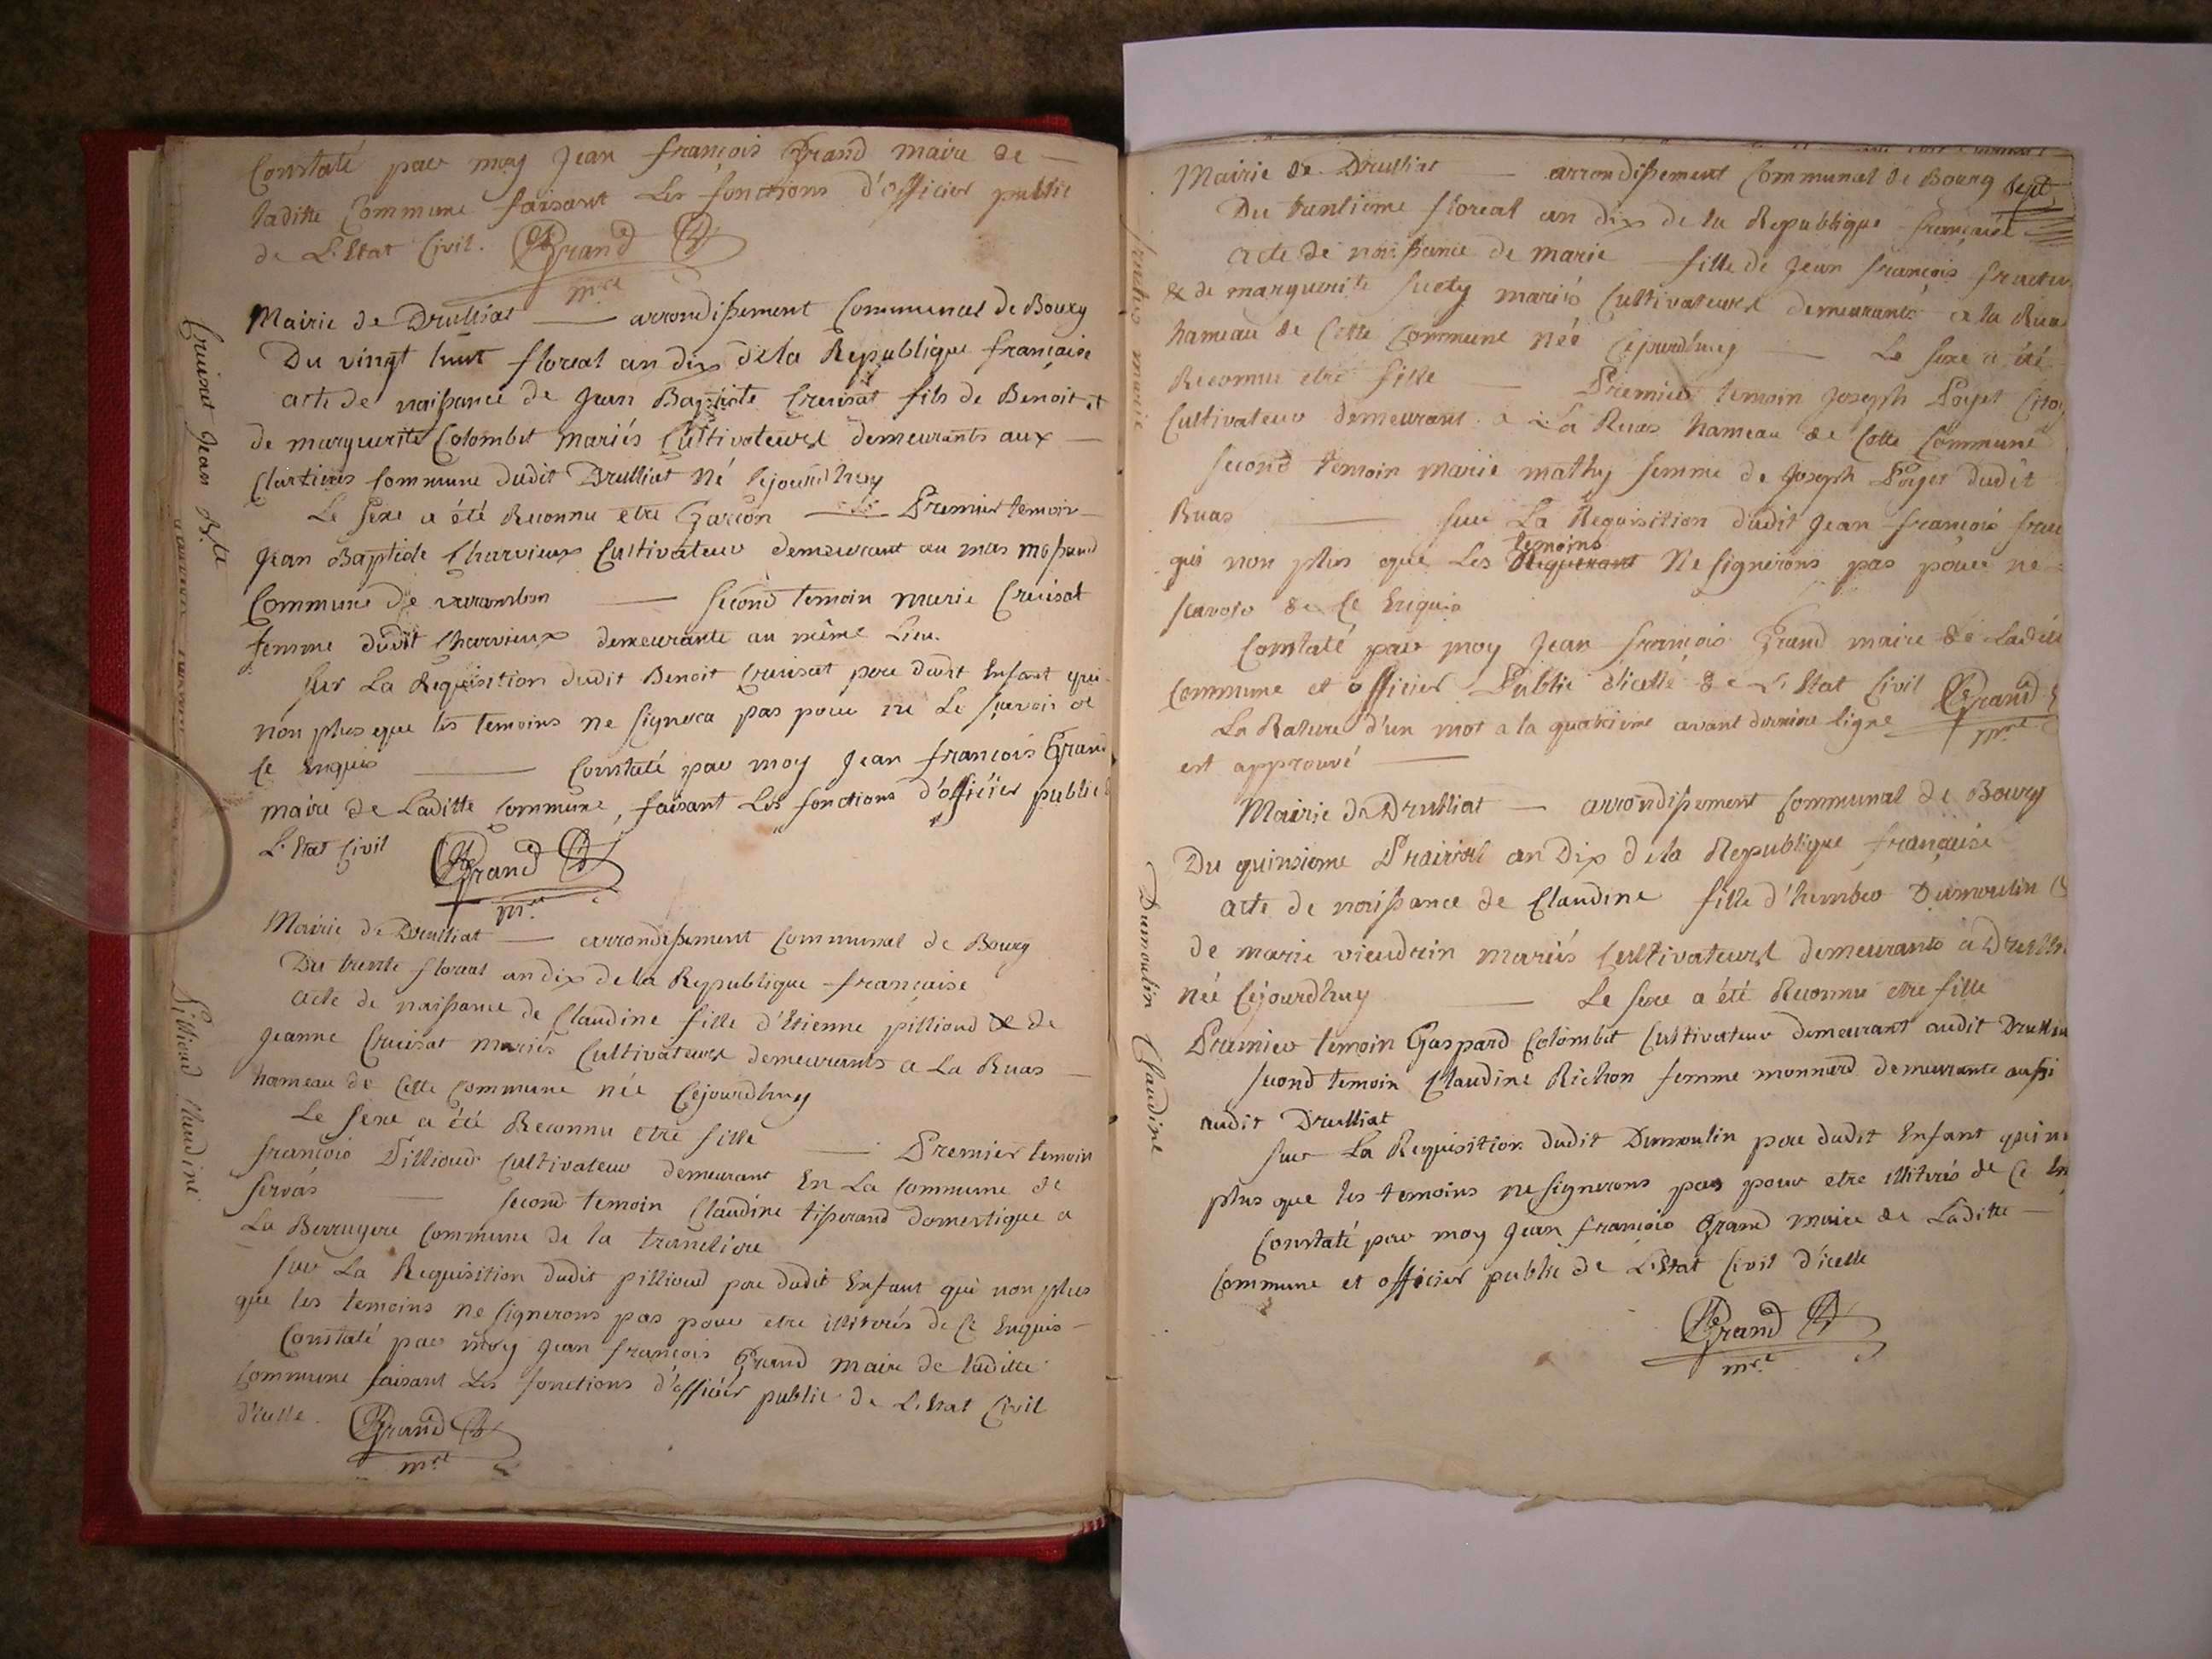 Constaté par moy Jean françois Grand maire de
laditte Commune faisant les fonctions d'officier public
de L'Etat Civil. Grand
mre
Mairie de Drulliat — arrondissement Communal de Bourg
Du vingt huit floreal an dix de la Republique française
acte de naissance de Jean Baptiste Cruisat fils de Benoit et
de marguerite Colombet mariés Cultivateurs demeurants aux
Commune dudit Drulliat né Cejourdhuy
Le sexe a été Reconnu etre Garçon — Premier temoin
Jean Baptiste Charvieux Cultivateur demeurant au mas
Commune de — second temoin marie Cruisat
femme dudit Charvieux demeurante au même Lieu.
sur La Requisition dudit Benoit Cruisat pere dudit Enfant qui
non plus que les temoins ne signera pas pour ne Le sçavoir de
Ce Enquis — Constaté par moy Jean françois Grand
maire de Laditte Commune, faisant Les fonctions d'officier public
L'Etat Civil Grand
mre
Mairie de Drulliat — arrondissement Communal de Bourg
Du trente floreal an dix de la Republique française
acte de naissance de Claudine fille d'Etienne pillioud & de
Jeanne Cruisat mariés Cultivateurs demeurants a La Ruas
hameau de Cette Commune née Cejourdhuy
Le sexe a été Reconnu etre fille — Premier temoin
françois Pillioud Cultivateur demeurant En La Commune de
servas — second temoin Claudine tisserand domestique a
La Berruyere Commune de la trancliere
sur La Requisition dudit pillioud pere dudit Enfant qui non plus
que les temoins ne signerons pas pour etre illiterés de Ce Enquis
Constaté par moy Jean françois Grand maire de laditte
Commune faisant Les fonctions d'officier public de L'Etat Civil
d'icelle. Grand
mre
Cruisat Jean Bte
Pillioud Claudine
Mairie de Drulliat — arrondissement Communal de Bourg
Du trentieme floreal an dix de la Republique française
acte de naissance de marie fille de Jean françois
& de marguerite mariés Cultivateurs demeurants a la Ruas
hameau de Cette Commune née Cejourdhuy — Le sexe a été
Reconnu etre fille — Premier temoin Joseph Poyet
Cultivateur demeurant a La Ruas hameau de Cette Commune
second temoin marie mathy femme de Joseph Poyet dudit
Ruas — sur La Requisition dudit Jean françois
temoins
qui non plus que Les Requerant Ne signerons pas pour ne
scavoir de Ce Enquis
Constaté par moy Jean françois Grand maire de Laditte
Commune et officier Public d'icelle de L'Etat Civil Grand
La Rature d'un mot a la quatrieme avant derniere ligne mre
est approuvé —
Mairie de Drulliat — arrondissement Communal de Bourg
Du quinsieme Prairial an Dix de la Republique française
acte de naissance de Claudine fille d'humber Dumoulin &
de marie vieudrin mariés Cultivateurs demeurants a
née Cejourdhuy — Le sexe a été Reconnu etre fille
Premier temoin Gaspard Colombet Cultivateur demeurant audit
second temoin Claudine Richon femme monnard demeurante aussi
audit Drulliat
sur La Requisition dudit Dumoulin pere dudit Enfant qui
plus que les temoins ne signerons pas pour etre illiterés de Ce
Constaté par moy Jean françois Grand maire de Laditte
Commune et officier public de L'Etat Civil d'icelle
Grand
mre
marie
Dumoulin Claudine